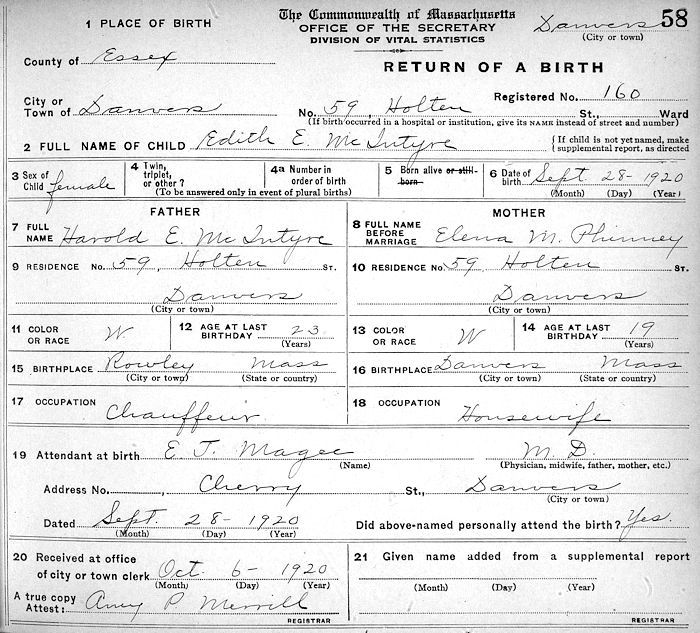 The Commonwealth of Massachusetts
OFFICE OF THE SECRETARY
DIVISION OF VITAL STATISTICS
Danvers 58
(City or town)
1 PLACE OF BIRTH
County of Essex
RETURN OF A BIRTH
Registered No. 160
City or
Town of Danvers No. 59, Holten St., Ward
(If birth occurred in a hospital or institution, give its NAME instead of street and number)
2 FULL NAME OF CHILD Edith E. McIntyre
{ If child is not yet named, make
supplemental report, as directed
3 Sex of
Child female
4 Twin,
triplet,
or other?
4a Number in
order of birth
(To be answered only in event of plural births)
5 Born alive or still-
born
6 Date of
birth Sept. 28- 1920
(Month) (Day) (Year)
FATHER
7 FULL
NAME Harold E. McIntyre
MOTHER
8 FULL NAME
BEFORE
MARRIAGE Elena M. Phinney
9 RESIDENCE No. 59, Holten ST.
Danvers
(City or town)
10 RESIDENCE No. 59 Holten ST.
Danvers
(City or town)
11 COLOR
OR RACE W.
12 AGE AT LAST
BIRTHDAY 23
(Years)
13 COLOR
OR RACE W
14 AGE AT LAST
BIRTHDAY 19
(Years)
15 BIRTHPLACE Rowley Mass
(City or town) (State or country)
16 BIRTHPLACE Danvers Mass
(City or town) (State or country)
17 OCCUPATION
Chauffeur
18 OCCUPATION
Housewife
19 Attendant at birth E. J. Magee M.D.
(Name) (Physician, midwife, father, mother, etc.)
Address No. , Cherry St., Danvers
(City or town)
Dated Sept. 28- 1920
(Month) (Day) (Year)
Did above-named personally attend the birth? Yes.
20 Received at office
of city or town clerk Oct. 6- 1920
(Month) (Day) (Year)
A true copy
Attest: Amy P. Merrill
REGISTRAR
21 Given name added from a supplemental report
(Month) (Day) (Year)
REGISTRAR